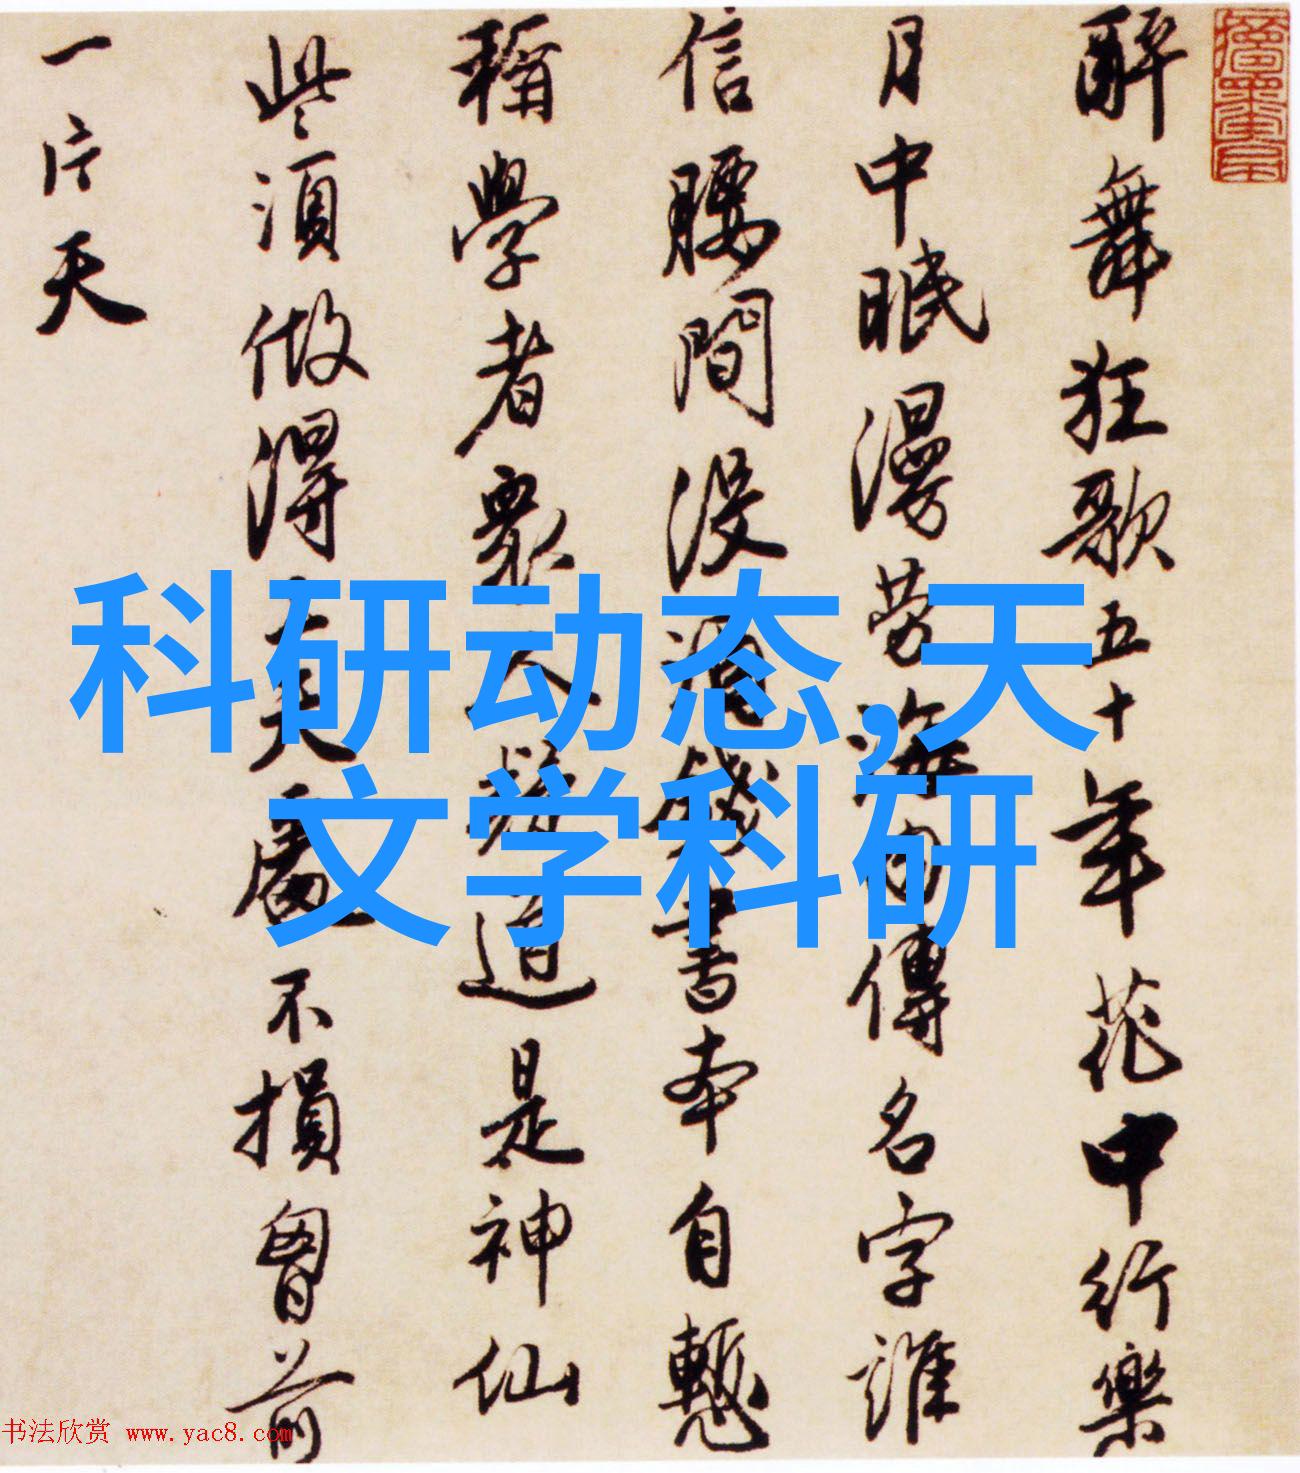 醉舞狂歌五十年花中行樂
月中眠漫勞海內傳名字誰
信腰間沒酒錢書本自慙
稱學者衆人疑道是神仙
些須做得工夫處不損胷前
一片天
科研动态,天
文学科研
书法欣赏 www.yac8.com